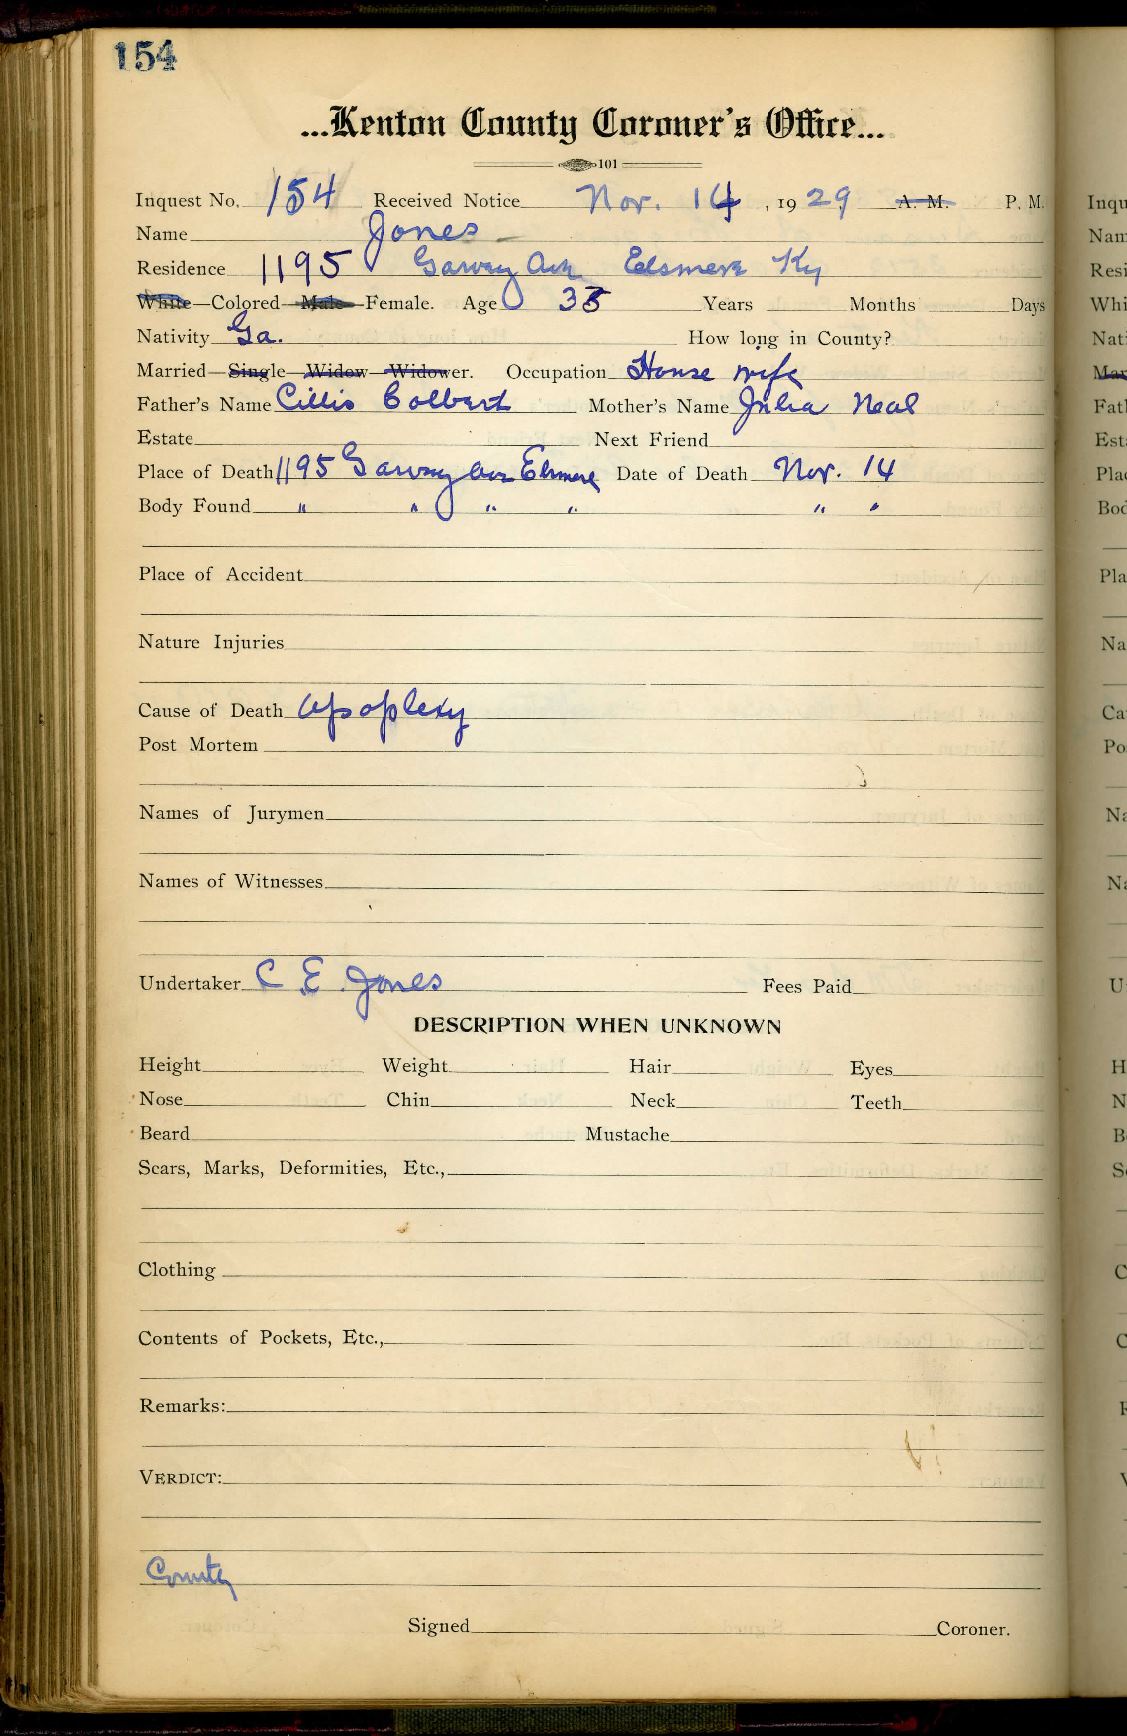 154
...Kenton County Coroner's Office...
101
Inquest No. 154 Received Notice Nov. 14, 1929 A. M. P. M.
Name Jones
Residence 1195 Garvey Ave Elsmere Ky
White—Colored—Male—Female. Age 35 Years Months Days
Nativity Ga. How long in County?
Married—Single—Widow—Widower. Occupation House wife
Father's Name Cillis Colbert Mother's Name Julia Neal
Estate Next Friend
Place of Death 1195 Garvey Ave Elsmere Date of Death Nov. 14
Body Found " " " " " "
Place of Accident
Nature Injuries
Cause of Death Apoplexy
Post Mortem
Names of Jurymen
Names of Witnesses
Undertaker C E Jones Fees Paid
DESCRIPTION WHEN UNKNOWN
Height Weight Hair Eyes
Nose Chin Neck Teeth
Beard Mustache
Scars, Marks, Deformities, Etc.,
Clothing
Contents of Pockets, Etc.,
Remarks:
VERDICT:
County
Signed Coroner.